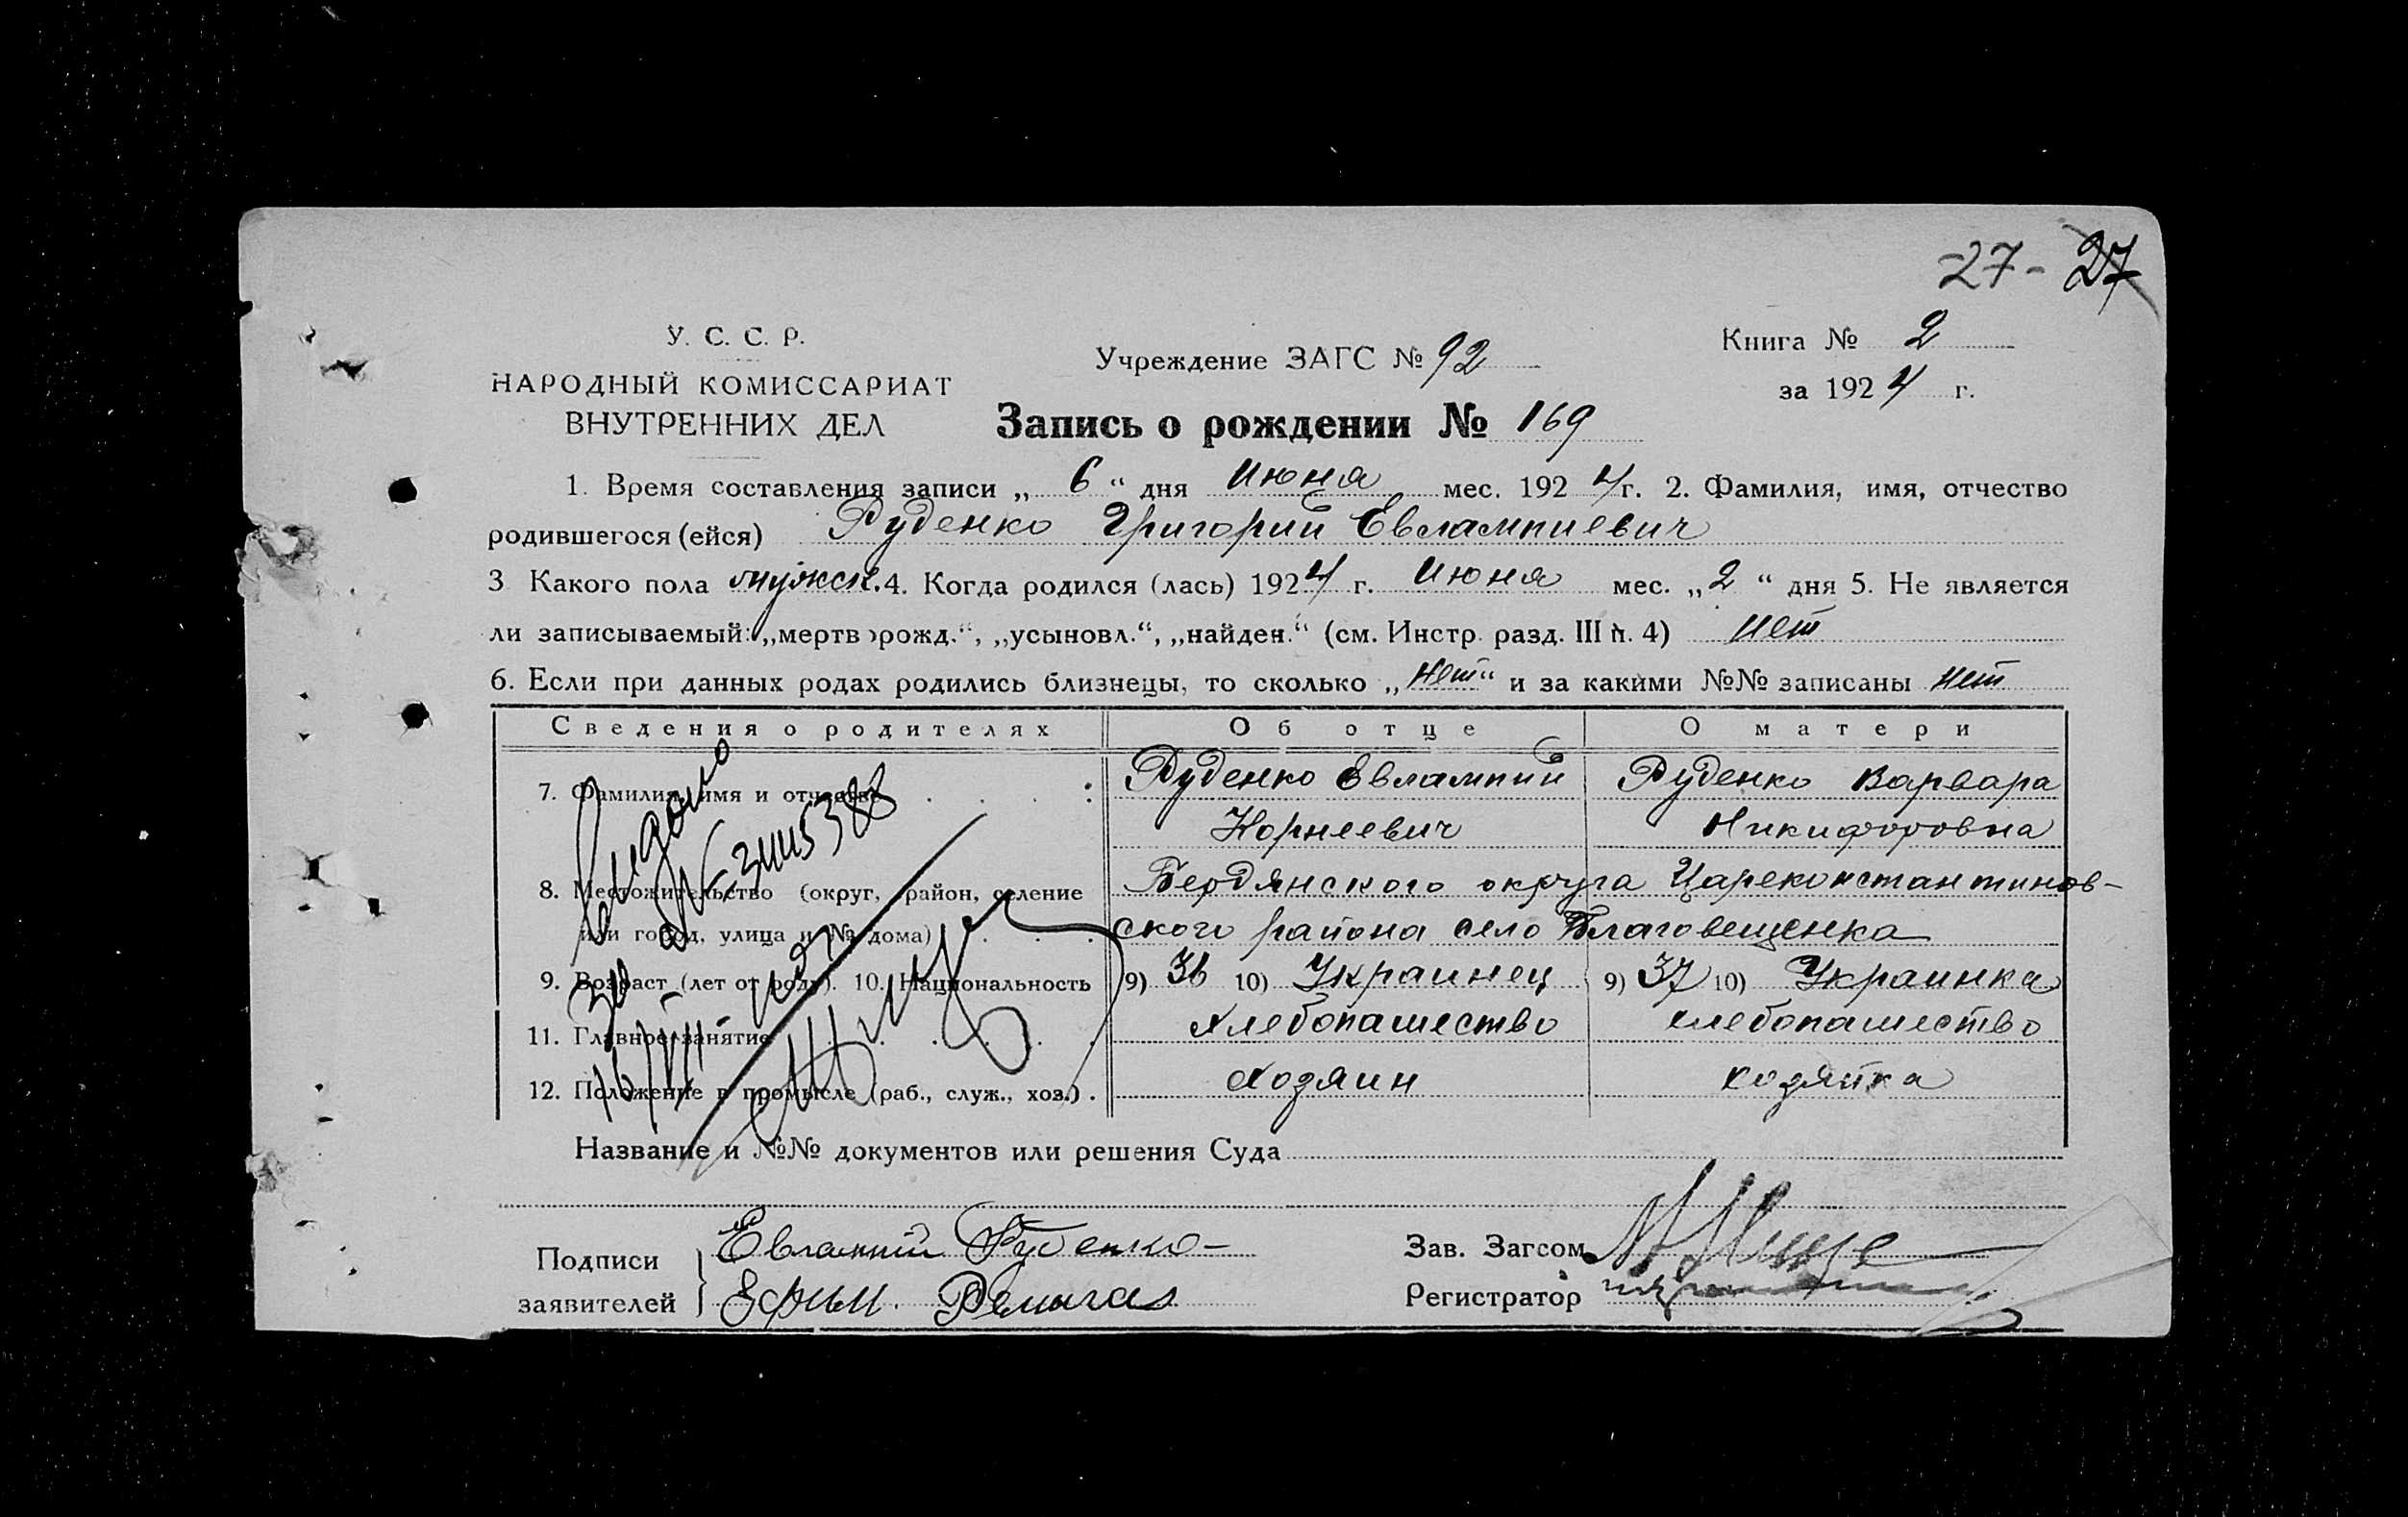 27- 27
У. С. С. Р.
НАРОДНЫЙ КОМИССАРИАТ
ВНУТРЕННИХ ДЕЛ
Учреждение ЗАГС № 92
Книга № 2
за 1924 г.
Запись о рождении № 169
1. Время составления записи „ 6 “ дня Июня мес. 1924 г. 2. Фамилия, имя, отчество
родившегося (ейся) Руденко Григорий Евлампиевич
3 Какого пола мужск. 4. Когда родился (лась) 1924 г. Июня мес. „ 2 “ дня 5. Не является
ли записываемый: „мертворожд.“, „усыновл.“, „найден.“ (см. Инстр. разд. III п. 4) нет
6. Если при данных родах родились близнецы, то сколько „ нет “ и за какими №№ записаны нет
Сведения о родителях Об отце О матери
7. Фамилия, имя и отчество . . . : Руденко Евлампий Руденко Варвара
Корнеевич Никифоровна
8. Местожительство (округ, район, селение Бердянского округа Цареконстантинов-
или город, улица и № дома) . . . ского района село Благовещенка
9. Возраст (лет от роду). 10. Национальность 9) 36 10) Украинец 9) 37 10) Украинка
11. Главное занятие . . . . . Хлебопашество хлебопашество
12. Положение в промысле (раб., служ., хоз.) . Хозяин хозяйка
Название и №№ документов или решения Суда
Подписи
заявителей
Евлампий Руденко
Ефим
Зав. Загсом
Регистратор